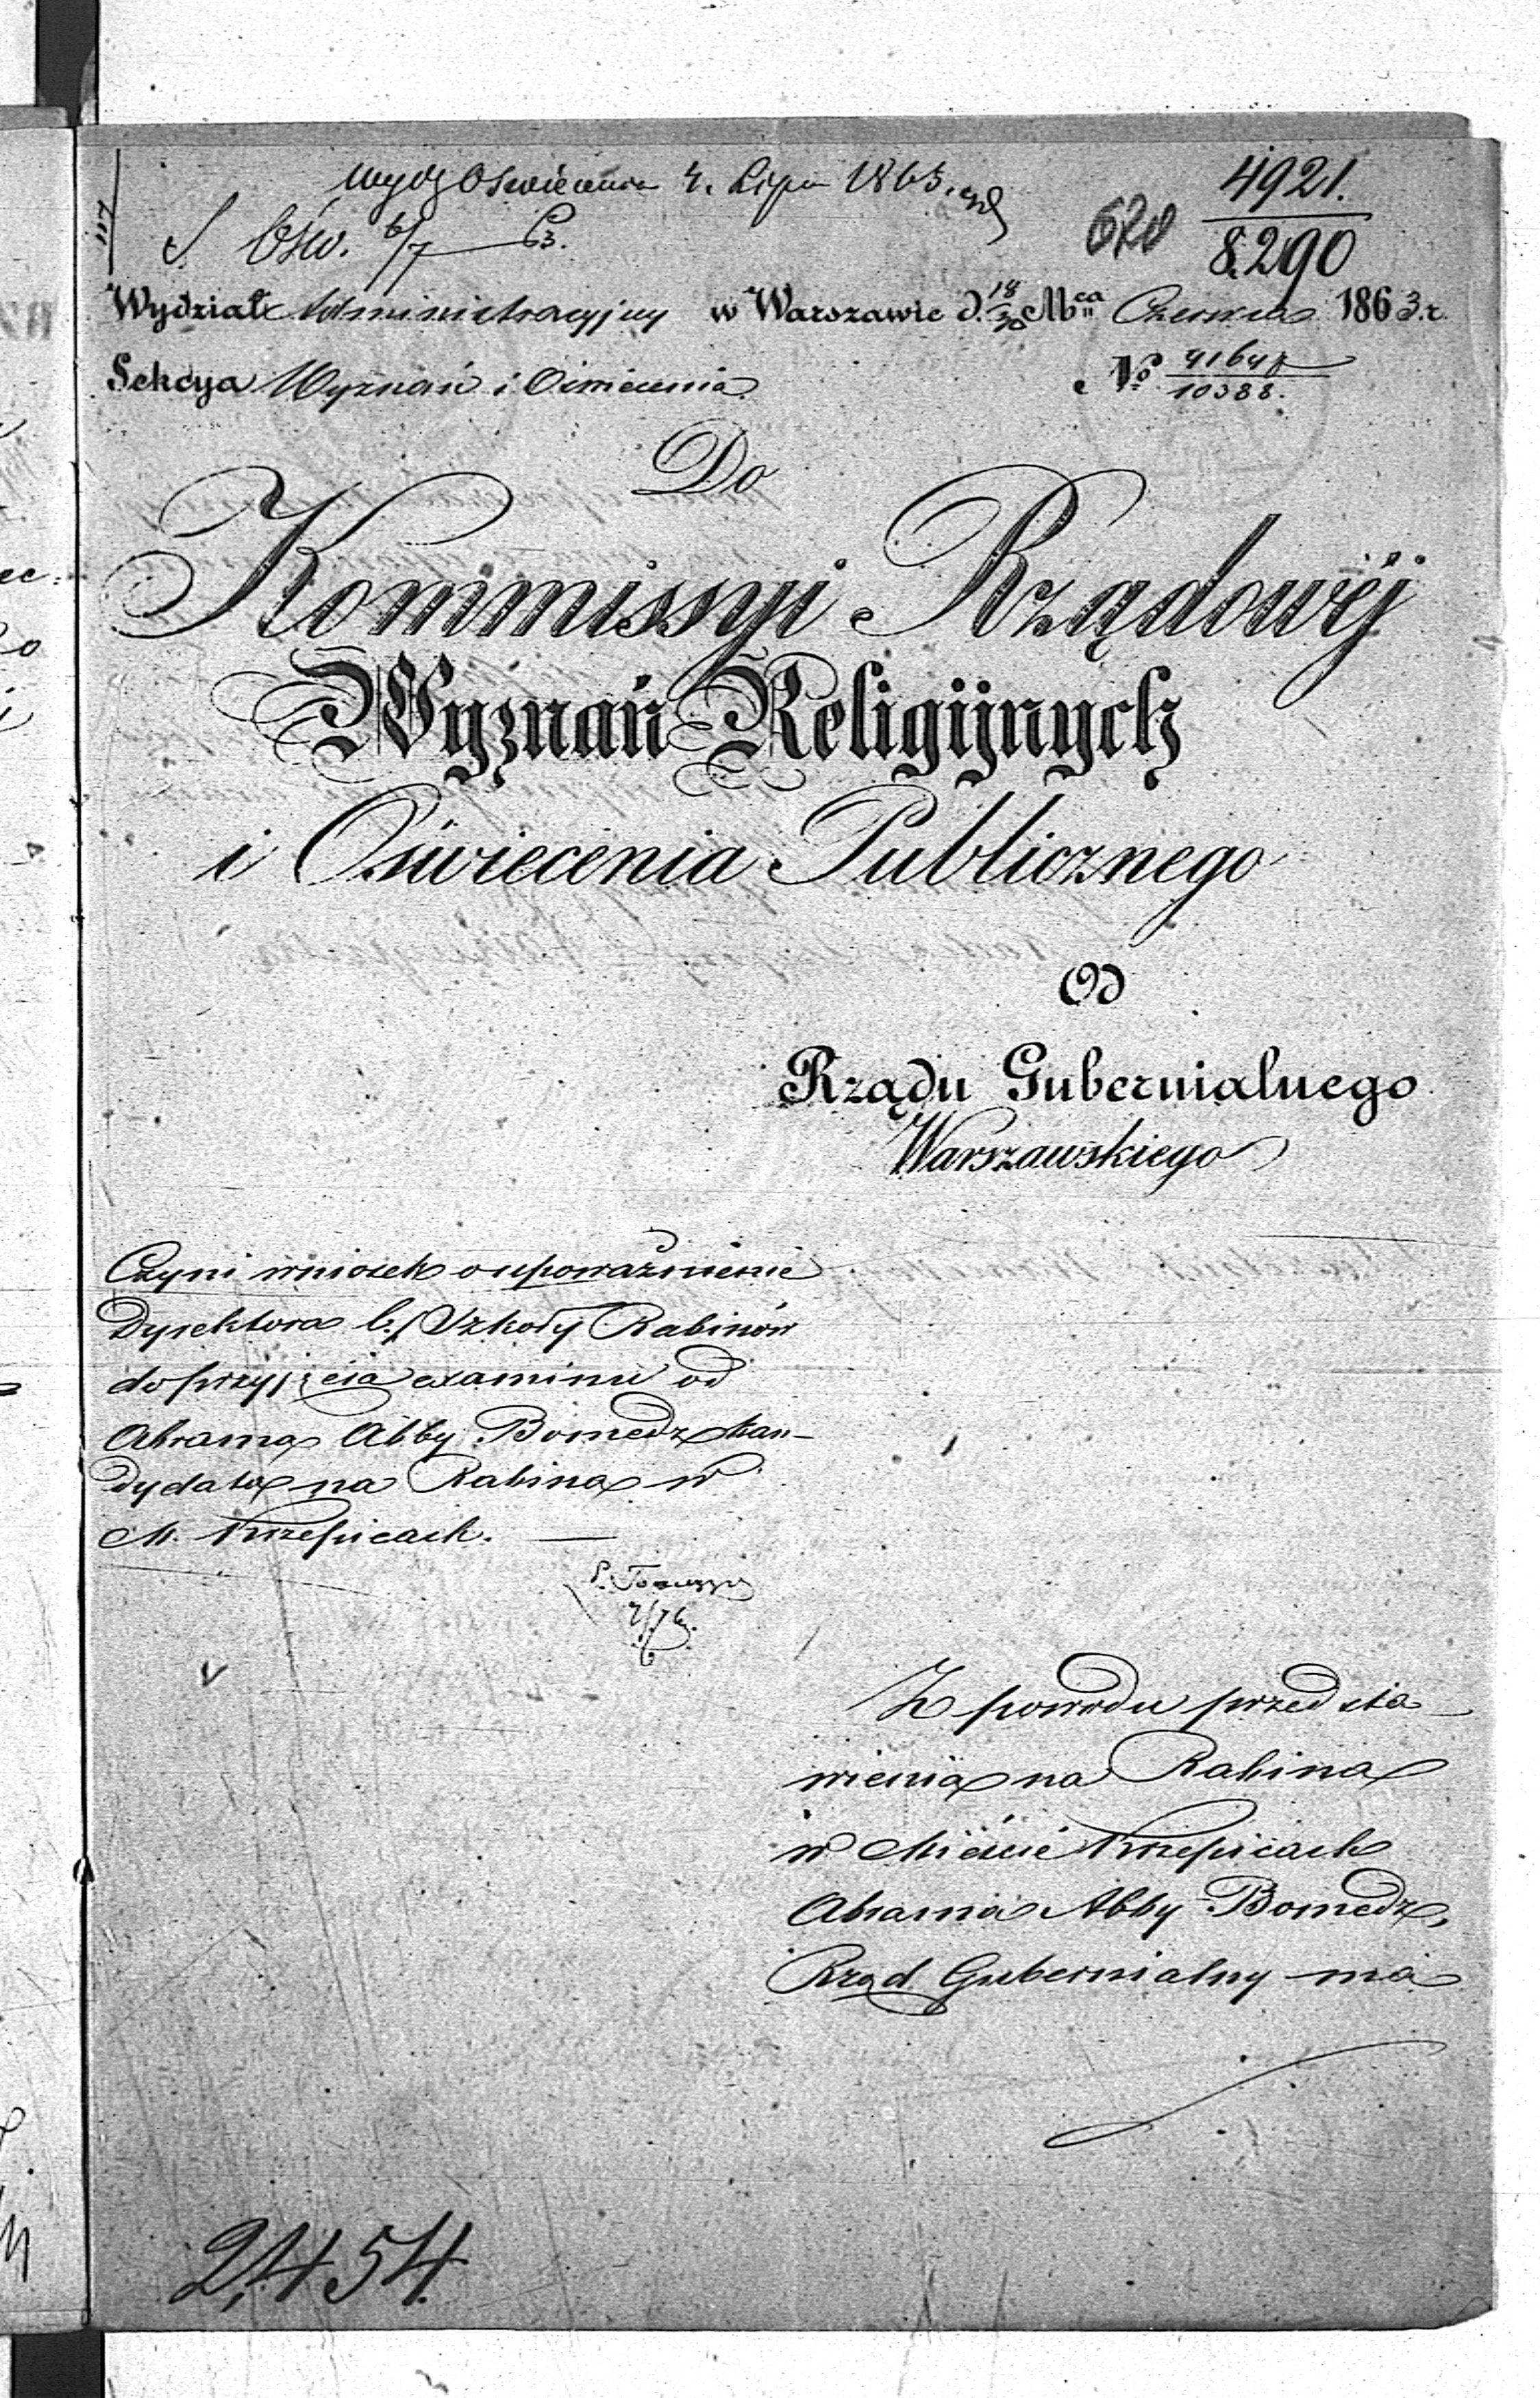 Wydz Oświecenia 4. Lipca 1863.
4921.
S. Ośw. 6/7 63.
8290
Wydział Administracyjny w Warszawie d. 18/30 Mca Czerwca 1863.r.
Sekcya Wyznań i Oświecenia No 41647/10388.
Do
Kommissyi Rządowéj
Wyznań Religijnych
i Oświecenia Publicznego
Od
Rządu Gubernialnego
Warszawskiego
Czyni wniosek o upoważnienie
Dyrektora b. Szkoły Rabinów
do przyjęcia examinu od
Abrama Abby Bomedz kan-
dydata na Rabina w
M. Krzepicach.
Z powodu przedsta-
wienia na Rabina
w Mieście Krzepicach
Abrama Abby Bomedz,
Rząd Gubernialny ma
2454.